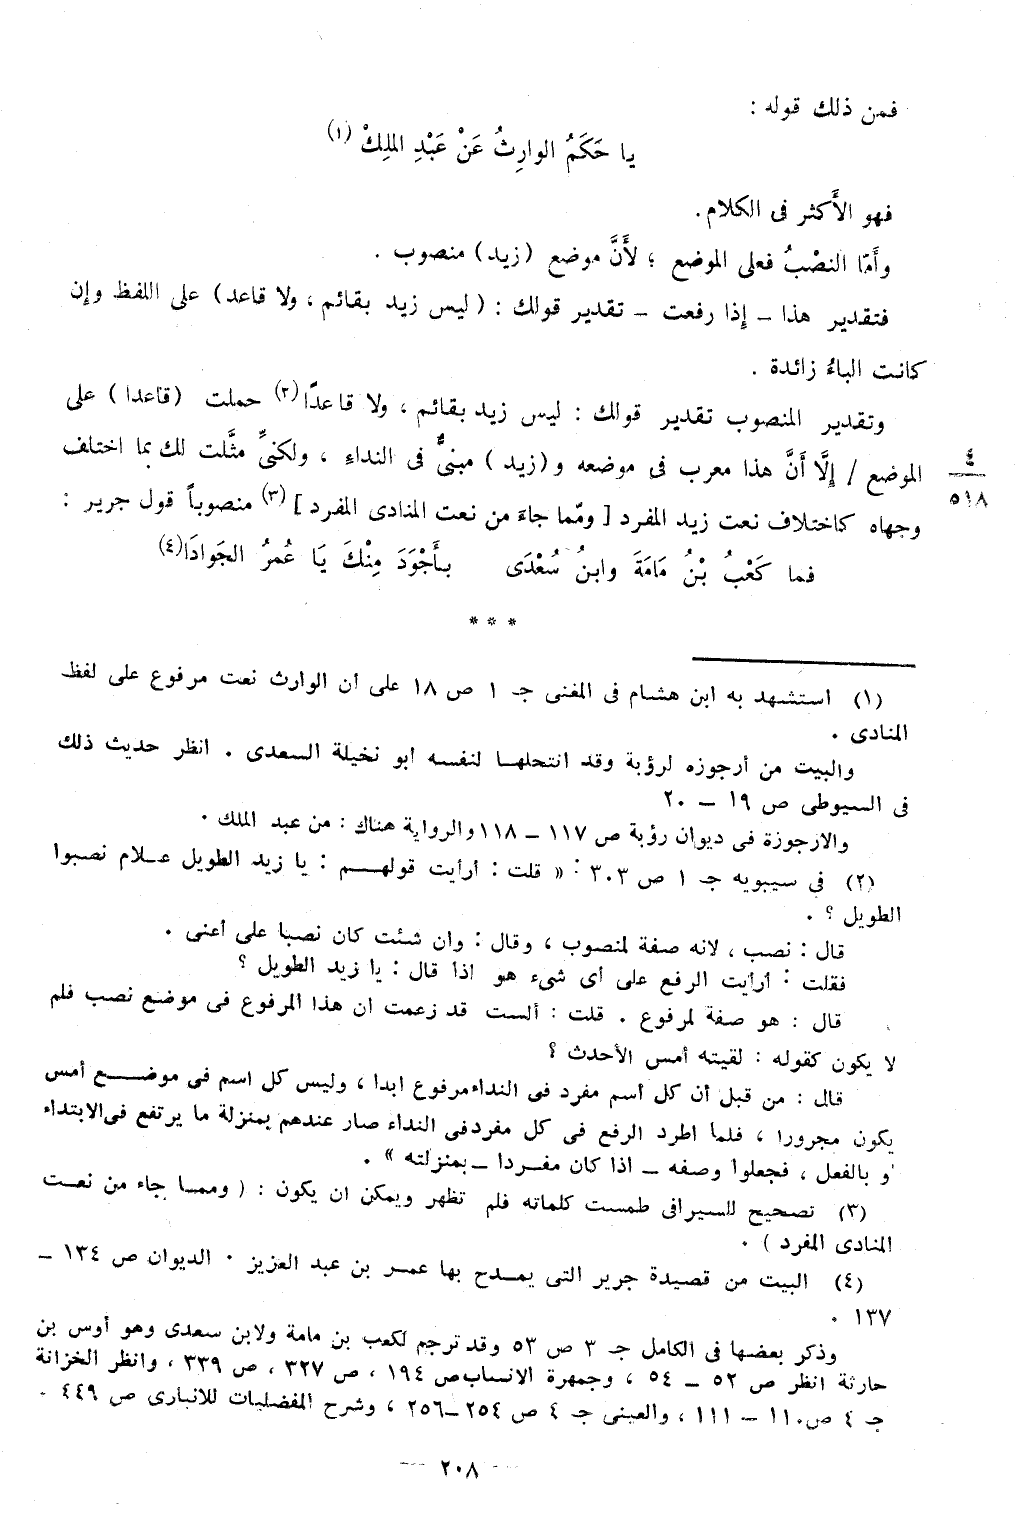 فمن ذلك قوله :
يا حَكَمُ الوارِثُ عَنْ عَبْدِ الملِكْ (١)
فهو الأَكثر فى الكلام.
وأَمّا النصْبُ فعلى الموضع ؛ لأَنَّ موضع (زيد) منصوب .
فتقدير هذا – إذا رفعت – تقدير قولك : (ليس زيد بقائم ، ولا قاعد) على اللفظ وإن
كانت الباءُ زائدة .
وتقدير المنصوب تقدير قولك : ليس زيد بقائم ، ولا قاعدًا (٢) حملت (قاعدا) على
الموضع / إلَّا أَنَّ هذا معرب فى موضعه و(زيد) مبنىٌّ فى النداءِ ، ولكنىِّ مثَّلت لك بما اختلف
٤
٥١٨
وجهاه كاختلاف نعت زيد المفرد [ وممّا جاءَ من نعت المنادى المفرد ] (٣) منصوباً قول جرير :
فما كَعْبُ بْنُ مَامَةَ وابنُ سُعْدَى بأَجْوَدَ مِنْكَ يَا عُمرُ الجَوادَا (٤)
* * *
(١) استشهد به ابن هشام فى المغنى جـ ١ ص ١٨ على أن الوارث نعت مرفوع على لفظ
المنادى .
والبيت من أرجوزه لرؤبة وقد انتحلهـا لنفسه ابو نخيلة السعدى . انظر حديث ذلك
فى السيوطى ص ١٩ – ٢٠
والارجوزة فى ديوان رؤبة ص ١١٧ – ١١٨ والرواية هناك : من عبد الملك .
(٢) فى سيبويه جـ ١ ص ٣٠٣ : « قلت : أرأيت قولهـم : يا زيد الطويل عـلام نصبوا
الطويل ؟ .
قال : نصب ، لانه صفة لمنصوب ، وقال : وان شئت كان نصبا على أعنى .
فقلت : أرأيت الرفع على أى شىء هو اذا قال : يا زيد الطويل ؟
قال : هو صفة لمرفوع . قلت : ألست قد زعمت ان هذا المرفوع فى موضع نصب فلم
لا يكون كقوله : لقيته أمس الأحدث ؟
قال : من قبل أن كل أسم مفرد فى النداء مرفوع ابدا ، وليس كل اسم فى موضـع أمس
يكون مجرورا ، فلما اطرد الرفع فى كل مفرد فى النداء صار عندهم بمنزلة ما يرتفع فى الابتداء
او بالفعل ، فجعلوا وصفه – اذا كان مفـردا – بمنزلته » .
(٣) تصحيح للسيرافى طمست كلماته فلم تظهر ويمكن ان يكون : ( وممـا جاء من نعـت
المنادى المفرد ) .
(٤) البيت من قصيدة جرير التى يمـدح بها عمـر بن عبد العزيز . الديوان ص ١٣٤ –
١٣٧ .
وذكر بعضها فى الكامل جـ ٣ ص ٥٣ وقد ترجم لكعب بن مامة ولابن سعدى وهو أوس بن
حارثة انظر ص ٥٢ – ٥٤ ، وجمهرة الانساب ص ١٩٤ ، ص ٣٢٧ ، ص ٣٣٩ ، وانظر الخزانة
جـ ٤ ص ١١٠ – ١١١ ، والعينى جـ ٤ ص ٢٥٤–٢٥٦ ، وشرح المفضليات للانبارى ص ٤٤٩ .
— ٢٠٨ —